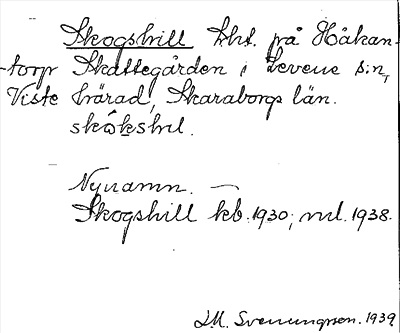 Skogshill lht. på Håkan-
torp Skattegården i Levene s:n,
Viste härad, Skaraborgs län.
skökshıl.
Nynamn. —
Skogshill kb. 1930; ml. 1938.
J.M. Svenungsson. 1939